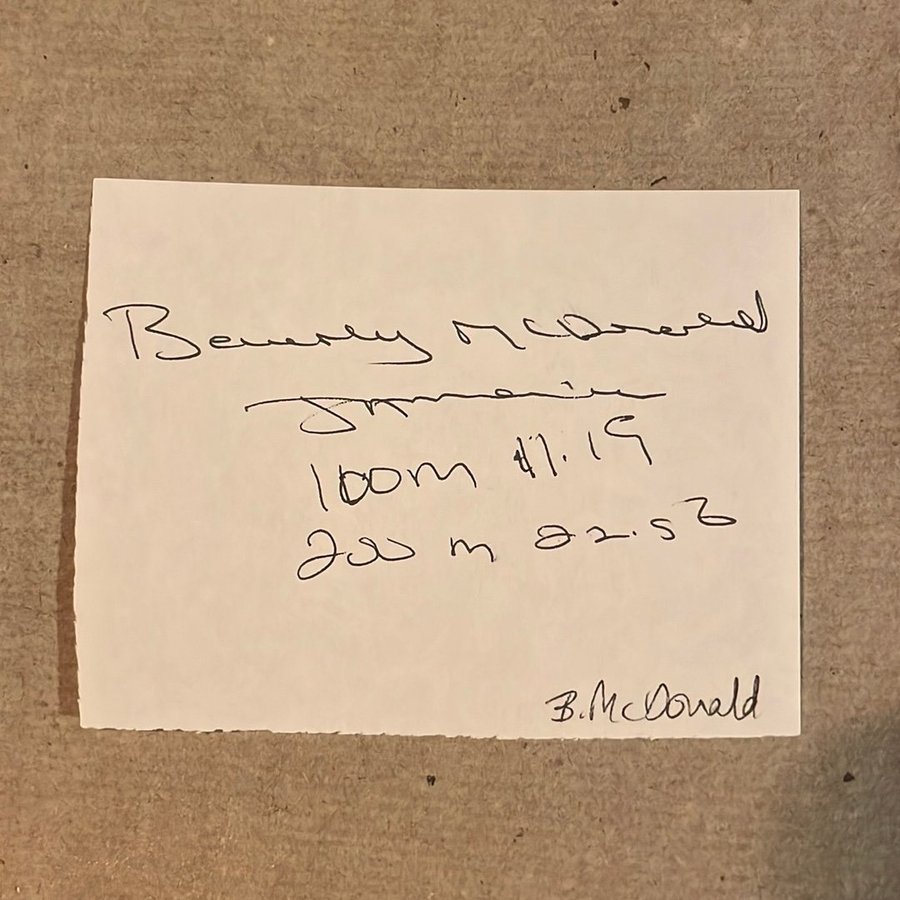 Beverly McDonald
Jamaica
100m 11.19
200m 22.53
B. McDonald